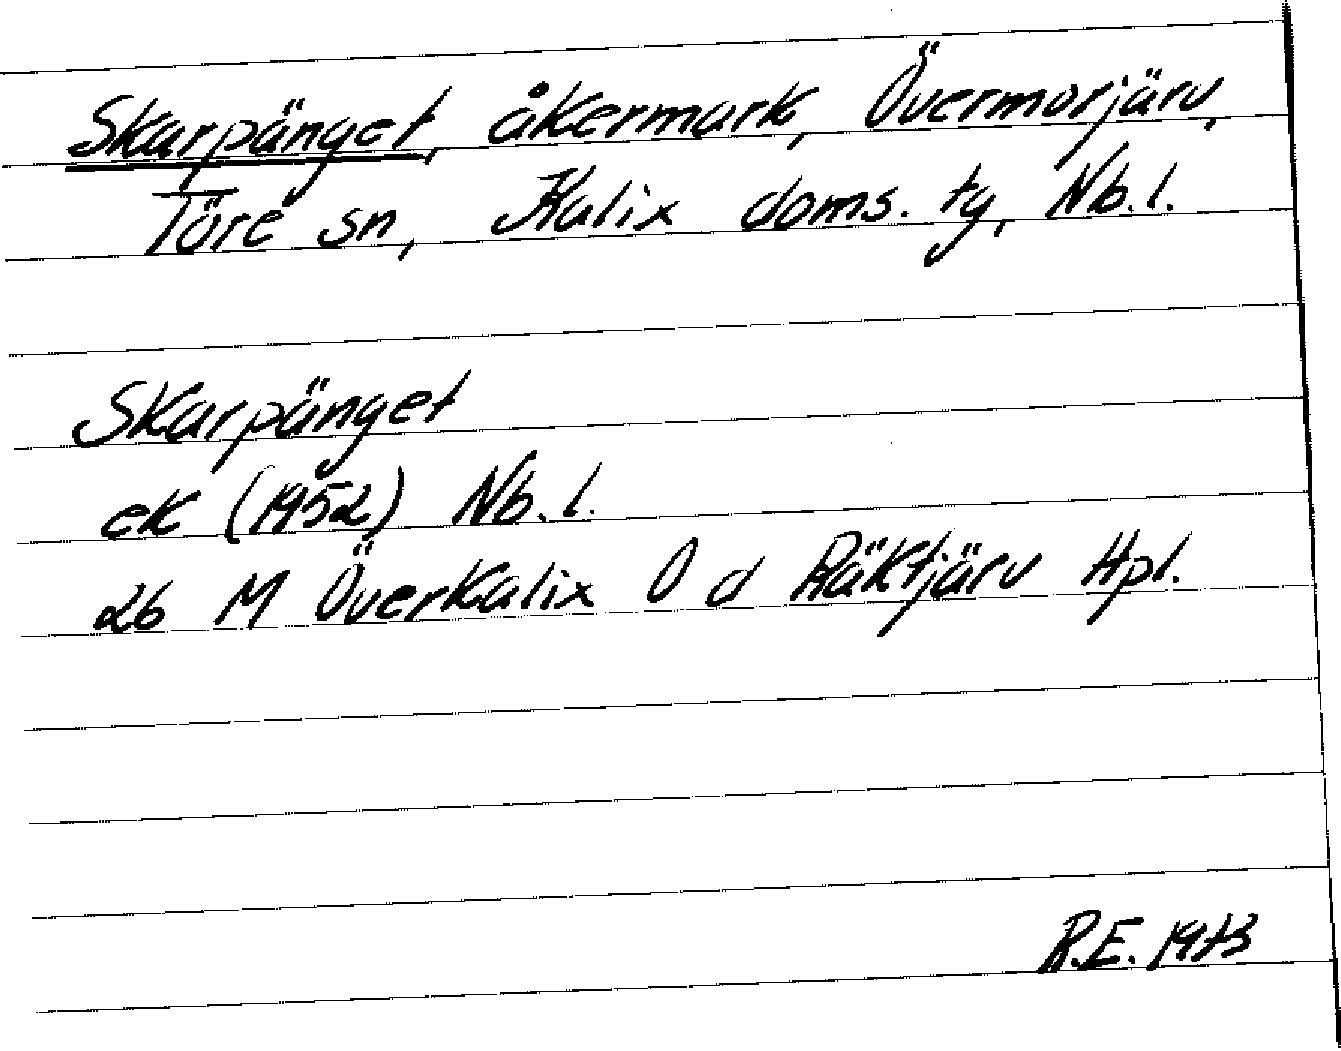 Skarpänget, åkermark, Övermorjärv,
Töre sn, Kalix doms. tg, Nb.l.
Skarpänget
ek (1952) Nb.l.
26 M Överkalix 0 d Räktjärv Hpl.
R.E. 1973